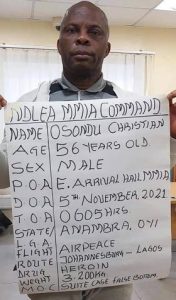 NDLEA MMIA COMMAND
NAME OSONDU CHRISTIAN
AGE 56 YEARS OLD.
SEX MALE
P.O.A E. ARRIVAL HALL MMIA
D.O.A 5TH NOVEMBER, 2021
T.O.A 0605HRS.
STATE/ ANAMBRA, OYI
L.G.A
FLIGHT AIRPEACE
ROUTE JOHANNESBURG - LAGOS
DRUG HEROIN
WEIGHT 3.200KG
M.O.C SUITE CASE FALSE BOTTOM.